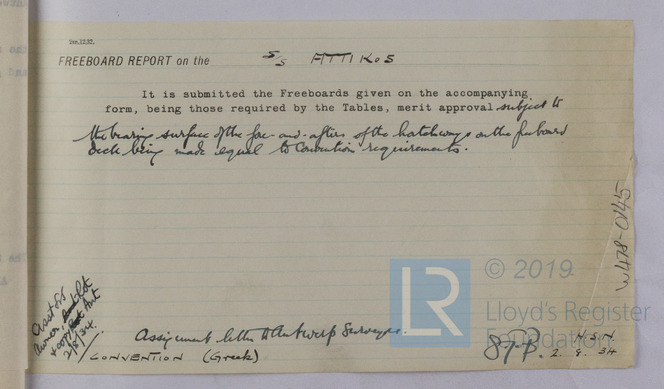 Dec.12.32.
FREEBOARD REPORT on the S/S ATTIKOS
It is submitted the Freeboards given on the accompanying
form, being those required by the Tables, merit approval subject to
the bearing surface of the fore-and-afters of the hatchways on the freeboard
deck being made equal to Convention requirements.
W478-0145
© 2019
LR
Lloyd's Register
Foundation
Owner,
2/8/34.
Assignment letter to Antwerp Surveyors.
CONVENTION (Greek)
2. 8. 34